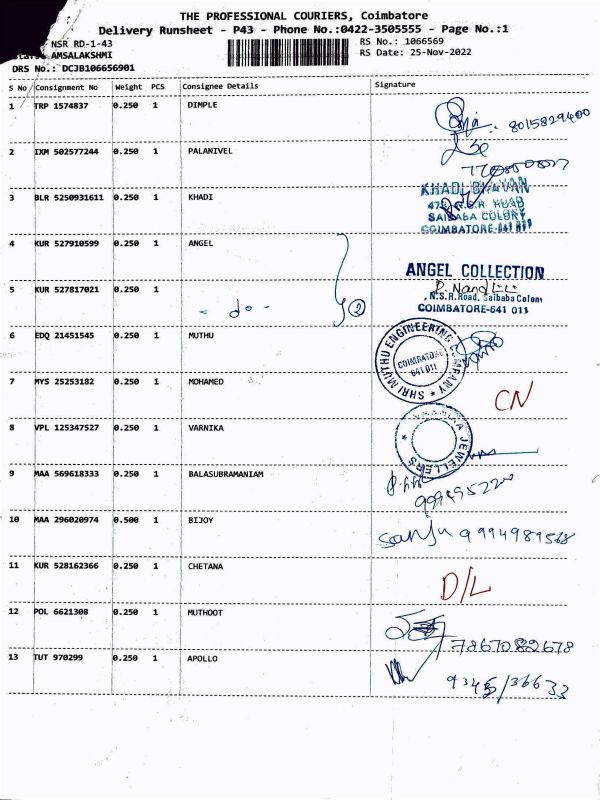 THE PROFESSIONAL COURIERS, Coimbatore
Delivery Runsheet - P43 - Phone No.:0422-3505555 - Page No.:1
NSR RD-1-43 RS No.: 1066569
AMSALAKSHMI RS Date: 25-Nov-2022
DRS No.: DCJB106656901
S No Consignment No Weight PCS Consignee Details Signature
1 TRP 1574837 0.250 1 DIMPLE 8015829400
2 IXM 502577244 0.250 1 PALANIVEL
3 BLR 5250931611 0.250 1 KHADI
KHADI BHAVAN
SAIBABA COLONY
COIMBATORE-641 011
4 KUR 527910599 0.250 1 ANGEL
ANGEL COLLECTION
5 KUR 527817021 0.250 1 - do - 2
N.S.R. Road, Saibaba Colony
COIMBATORE-641 011
6 EDQ 21451545 0.250 1 MUTHU
SHRI MUTHU ENGINEERING COMPANY
COIMBATORE
641 011
7 MYS 25253182 0.250 1 MOHAMED CN
8 VPL 125347527 0.250 1 VARNIKA
JEWELLERS
9 MAA 569618333 0.250 1 BALASUBRAMANIAM
10 MAA 296020974 0.500 1 BIJOY Sanju 9994981568
11 KUR 528162366 0.250 1 CHETANA D/L
12 POL 6621308 0.250 1 MUTHOOT 7867082678
13 TUT 970299 0.250 1 APOLLO